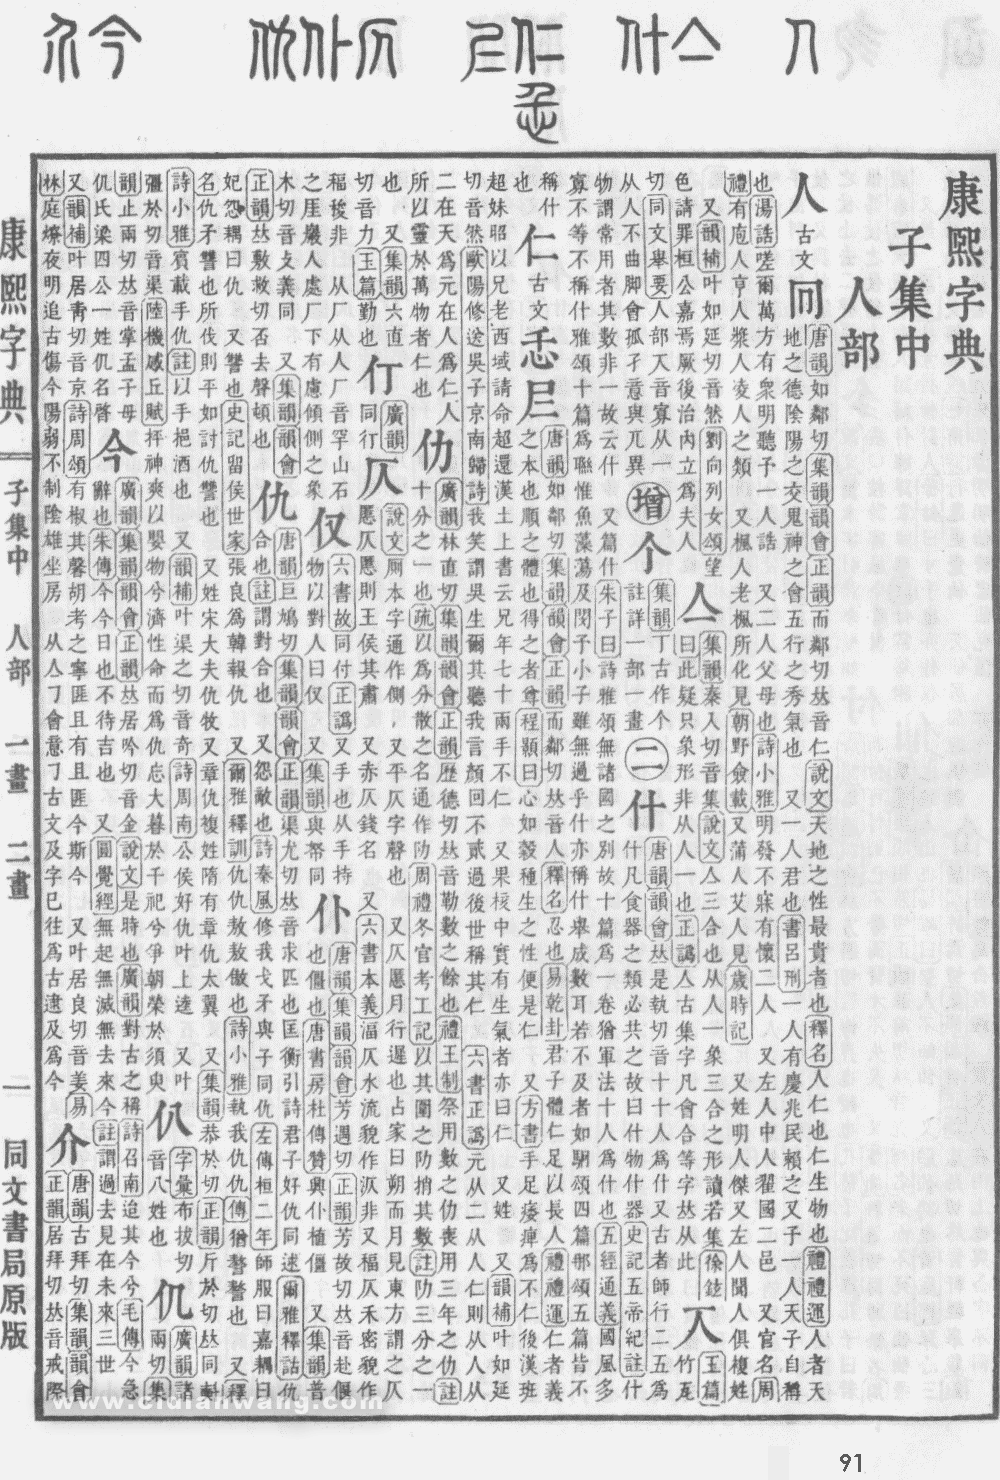 康熙字典
子集中
人部
人 古文 唐韻如鄰切集韻韻會正韻而鄰切𠀤音仁說文天地之性最貴者也釋名人仁也仁生物也禮禮運人者天
地之德陰陽之交鬼神之會五行之秀氣也 又一人君也書呂刑一人有慶兆民賴之又予一人天子自稱
也湯誥嗟爾萬方有衆明聽予一人誥 又二人父母也詩小雅明發不寐有懷二人 又左人中人翟國二邑 又官名周
禮有庖人亨人漿人凌人之類 又楓人老楓所化見朝野僉載又蒲人艾人見歲時記 又姓明人傑又左人聞人俱複姓
又韻補叶如延切音然劉向列女頌望
色請罪桓公嘉焉厥後治內立爲夫人
亼 集韻秦入切音集說文亼三合也从人一象三合之形讀若集徐鉉
曰此疑只象形非从人一也正譌亼古集字凡會合等字𠀤从此
玉篇竹瓦
切同文舉要人部音寡从一
从人不曲脚會孤孑意與兀異
增
个 集韻丁古作个
註詳丨部一畫
二
什 唐韻韻會𠀤是執切音十十人爲什又古者師行二五爲
什凡食器之類必共之故曰什物什器史記五帝紀註什
物謂常用者其數非一故云什 又篇什朱子曰詩雅頌無諸國之別故十篇爲一卷猶軍法十人爲什也五經通義國風多
寡不等不稱什雅頌十篇爲聯惟魚藻蕩及閔予小子雖無過乎什亦稱什舉成數耳若不及者如駉頌四篇那頌五篇皆不
稱什
也
仁 古文忎𡰥 唐韻如鄰切集韻韻會正韻而鄰切𠀤音人釋名忍也易乾卦君子體仁足以長人禮禮運仁者義
之本也順之體也得之者尊程顥曰心如穀種生之性便是仁 又方書手足痿痺爲不仁後漢班
超妹昭以兄老西域請命超還漢土上書云兄年七十兩手不仁 又果核中實有生氣者亦曰仁 又姓 又韻補叶如延
切音然歐陽修送吳子京南歸詩我笑謂吳生爾其聽我言顏回不貳過後世稱其仁 六書正譌元从二从人仁則从人从
二在天爲元在人爲仁人
所以靈於萬物者仁也
仂 廣韻林直切集韻韻會正韻歷德切𠀤音勒數之餘也禮王制祭用數之仂喪用三年之仂註
十分之一也疏以爲分散之名通作阞周禮冬官考工記以其圍之阞捎其數註阞三分之一
也 又集韻六直
切音力玉篇勤也
仃 廣韻
同行
仄 說文厠本字通作側 又平仄字聲也 又仄慝月行遲也占家曰朔而月見東方謂之仄
慝仄慝則王侯其肅 又赤仄錢名 又六書本義湢仄水流貌作㲸非又福仄禾密貌作
福稄非 从厂从人厂音罕山石
之厓巖人處厂下有慮傾側之象
仅 六書故同付正譌又手也从手持
物以對人曰仅 又集韻與帤同
仆 唐韻集韻韻會芳遇切正韻芳故切𠀤音赴偃
也僵也唐書房杜傳贊興仆植僵 又集韻普
木切音攴義同 又集韻韻會
正韻𠀤敷救切否去聲頓也
仇 唐韻巨鳩切集韻韻會正韻渠尤切𠀤音求匹也匡衡引詩君子好仇同逑爾雅釋詁仇
合也註謂對合也 又怨敵也詩秦風修我戈矛與子同仇左傳桓二年師服曰嘉耦曰
妃怨耦曰仇 又讐也史記留侯世家張良爲韓報仇 又爾雅釋訓仇仇敖敖傲也詩小雅執我仇仇傳猶謷謷也 又釋
名仇矛讐也所伐則平如討仇讐也 又姓宋大夫仇牧又章仇複姓隋有章仇太翼 又集韻恭於切正韻斤於切𠀤同㪺
詩小雅賓載手仇註以手挹酒也 又韻補叶渠之切音奇詩周南公侯好仇叶上逵 又叶
彊於切音渠陸機感丘賦抨神爽以嬰物兮濟性命而爲仇忘大暮於千祀兮爭朝榮於須臾
仈 字彙布拔切
音八姓也
仉 廣韻諸
兩切集
韻止兩切𠀤音掌孟子母
仉氏梁四公一姓仉名䏿
今 廣韻集韻韻會正韻𠀤居吟切音金說文是時也廣韻對古之稱詩召南迨其今兮毛傳今急
辭也朱傳今今日也不待吉也 又圓覺經無起無滅無去來今註謂過去見在未來三世
又韻補叶居靑切音京詩周頌有椒其馨胡考之寧匪且有且匪今斯今 又叶居良切音姜易
林庭燎夜明追古傷今陽弱不制陰雄坐戾 从亼會意古文及字已往爲古逮及爲今
介 唐韻古拜切集韻韻會
正韻居拜切𠀤音戒際
康熙字典 子集中 人部 一畫 二畫 一 同文書局原版
91
www.cidianwang.com